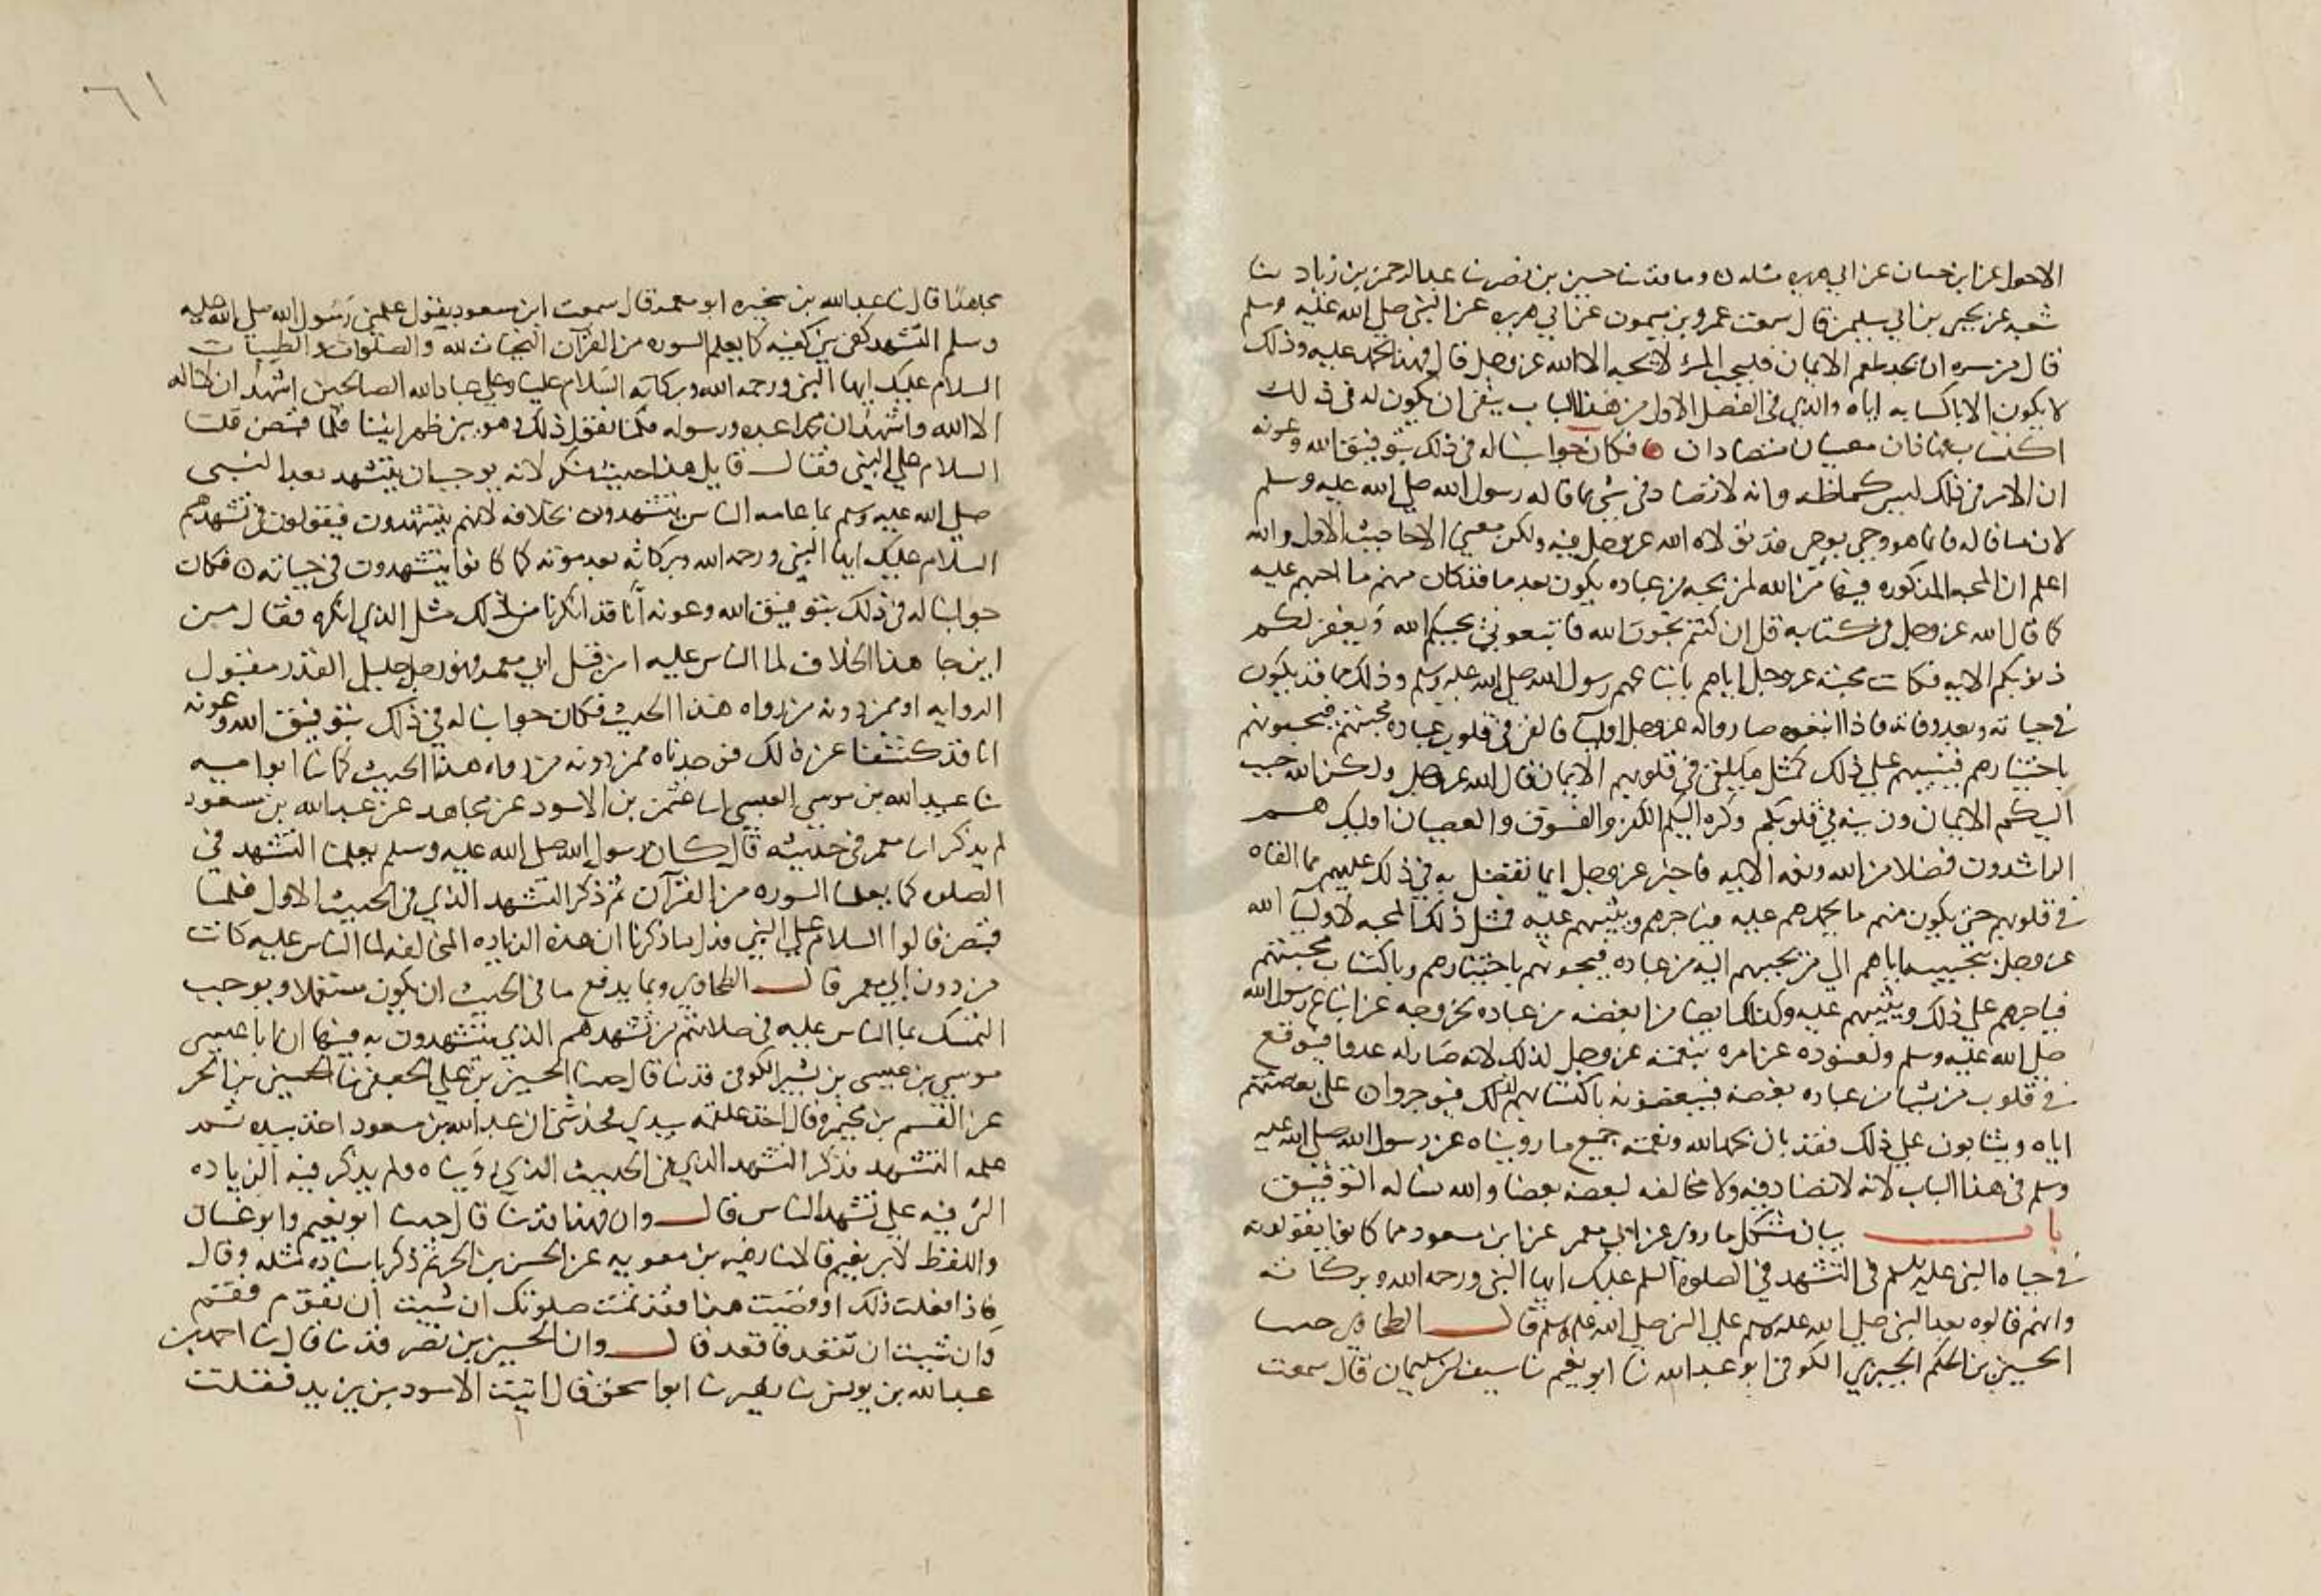 الاحول عن ابن حسان عن ابي هريره مثله ٥ وما قد ثنا حسين بن نصر ثنا عبد الرحمن بن زياد ثنا
شعبه عن يحيى بن ابي سليم قال سمعت عمرو بن ميمون عن ابي هريره عن النبي صلى الله عليه وسلم
قال من سره ان يجد طعم الايمان فليحب المرء لا يحبه الا الله عز وجل قال فهذا يحمد عليه وذلك
لا يكون الا باكتسابه اياه والذي في الفصل الاول من هذا الباب ينفي ان يكون له في ذلك
اكتساب فهاذان معنيان متضادان فكان جوابنا له في ذلك بتوفيق الله وعونه
ان الامر في ذلك ليس كما ظنه وانه لا تضاد في شي مما قاله رسول الله صلى الله عليه وسلم
لان ما قاله فانما هو وحي يوحى قد تولاه الله عز وجل فيه ولكن معنى الاحاديث الاول والله
اعلم ان المحبه المذكوره فيها من الله لمن يحبه من عباده يكون بعد ما قد كان منهم ما احبهم عليه
كما قال الله عز وجل في كتابه قل ان كنتم تحبون الله فاتبعوني يحببكم الله ويغفر لكم
ذنوبكم الايه فكانت محبته عز وجل اياهم باتباعهم رسول الله صلى الله عليه وسلم وذلك مما قد يكون
في حياته وبعد وفاته فاذا اتبعوه صاروا له عز وجل اوليآ فالقى في قلوب عباده محبتهم فيحبونهم
باختيارهم فيثيبهم على ذلك كمثل ما يلقى في قلوبهم الايمان قال الله عز وجل ولكن الله حبب
اليكم الايمان وزينه في قلوبكم وكره اليكم الكفر والفسوق والعصيان اوليك هم
الراشدون فضلا من الله ونعمه الايه فاخبر عز وجل انما تفضل به في ذلك عليهم مما القاه
في قلوبهم حتى يكون منهم ما يحمدهم عليه فياجرهم ويثيبهم عليه فمثل ذلك المحبه لاوليآ الله
عز وجل بتحبيبه اياهم الى من يحببهم اليه من عباده فيحبونهم باختيارهم وباكتساب محبتهم
فياجرهم على ذلك ويثيبهم عليه وكذلك ايضا من ابغضه من عباده بخروجه عن اتباع رسول الله
صلى الله عليه وسلم ولعنوده عن امره يبغضه عز وجل لذلك لانه صار له عدوا فيوقع
في قلوب من يشا من عباده بغضه فيبغضونه باكتسابهم لذلك فيوجروان على بغضهم
اياه ويثابون على ذلك فقد بان بحمد الله ونعمته جميع ما رويناه عن رسول الله صلى الله عليه
وسلم في هذا الباب لانه لا تضاد فيه ولا مخالفه لبعضه بعضا والله نساله التوفيق
باب بيان مشكل ما روي عن ابي معمر عن ابن مسعود مما كانوا يقولونه
في حياه النبي عليه السلم في التشهد في الصلوة السلم عليك ايها النبي ورحمه الله وبركاته
وانهم قالوه بعد النبي صلى الله عليه وسلم على النبي صلى الله عليه وسلم قال الطحاوي حدثنا
الحسين بن الحكم الجيزي الكوفي ابو عبد الله نا ابو نعيم نا سيف بن سليمان قال سمعت
مجاهدا قال ثنا عبد الله بن سخبره ابو معمر قال سمعت ابن مسعود يقول علمني رسول الله صلى الله عليه
وسلم التشهد كفي بين كفيه كما يعلم السوره من القرآن التحيات لله والصلوات والطيبات
السلام عليك ايها النبي ورحمه الله وبركاته السلام علينا وعلى عباد الله الصالحين اشهد ان لا اله
الا الله واشهد ان محمدا عبده ورسوله فكنا نقول ذلك وهو بين ظهرانينا فلما قبض قلت
السلام على النبي فقال قايل هذا حديث منكر لانه يوجب ان يتشهد بعد النبي
صلى الله عليه وسلم بما عامه الناس يتشهدون بخلافه لانهم يتشهدون فيقولون في تشهدهم
السلام عليك ايها النبي ورحمه الله وبركاته بعد موته كما كانوا يتشهدون في حياته ٥ فكان
جوابنا له في ذلك بتوفيق الله وعونه انا قد انكرنا من ذلك مثل الذي انكره فقال من
اين جا هذا الخلاف لما الناس عليه امن قبل ابي معمر فهو رجل جليل القدر مقبول
الروايه او ممن دونه من رواه هذا الحديث فكان جوابنا له في ذلك بتوفيق الله وعونه
انا قد كشفنا عن ذلك فوجدناه ممن دونه من رواه هذا الحديث كما ثنا ابو اميه
ثنا عبيد الله بن موسى العبسي انا عثمن بن الاسود عن مجاهد عن عبد الله بن مسعود
لم يذكر ابا معمر في حديثه قال كان رسول الله صلى الله عليه وسلم يعلمنا التشهد في
الصلوه كما يعلمنا السوره من القرآن ثم ذكر التشهد الذي في الحديث الاول فلما
قبض قالوا السلام على النبي فدل ما ذكرنا ان هذه الزياده المخالفه لما الناس عليه كانت
من دون ابي معمر قال الطحاوي ومما يدفع ما في الحديث ان يكون مستعملا ويوجب
التمسك بما الناس عليه في صلاتهم من تشهدهم الذي يتشهدون به فيها ان ابا عيسى
موسى بن عيسى بن بشير الكوفي قد ثنا قال حدثنا الحسين بن علي الجعفي ثنا الحسين بن الحر
عن القسم بن مخيمره قال اخذ علقمه بيدي فحدثني ان عبد الله بن مسعود اخذ بيده ثم
علمه التشهد فذكر التشهد الذي في الحديث الذي رويناه ولم يذكر فيه الزياده
التي فيه على تشهد الناس قال وان فهدا قد ثنا قال حدثنا ابو نعيم وابو غسان
واللفظ لابي نعيم قالا ثنا زهير بن معويه عن الحسن بن الحر ثم ذكر باسناده مثله وقال
فاذا فعلت ذلك او قضيت هذا فقد تمت صلوتك ان شيت ان تقوم فقم
وان شيت ان تقعد فاقعد قال وان الحسين بن نصر قد ثنا قال ثنا احمد بن
عبد الله بن يونس ثنا زهير ثنا ابو اسحق قال اتيت الاسود بن يزيد فقلت